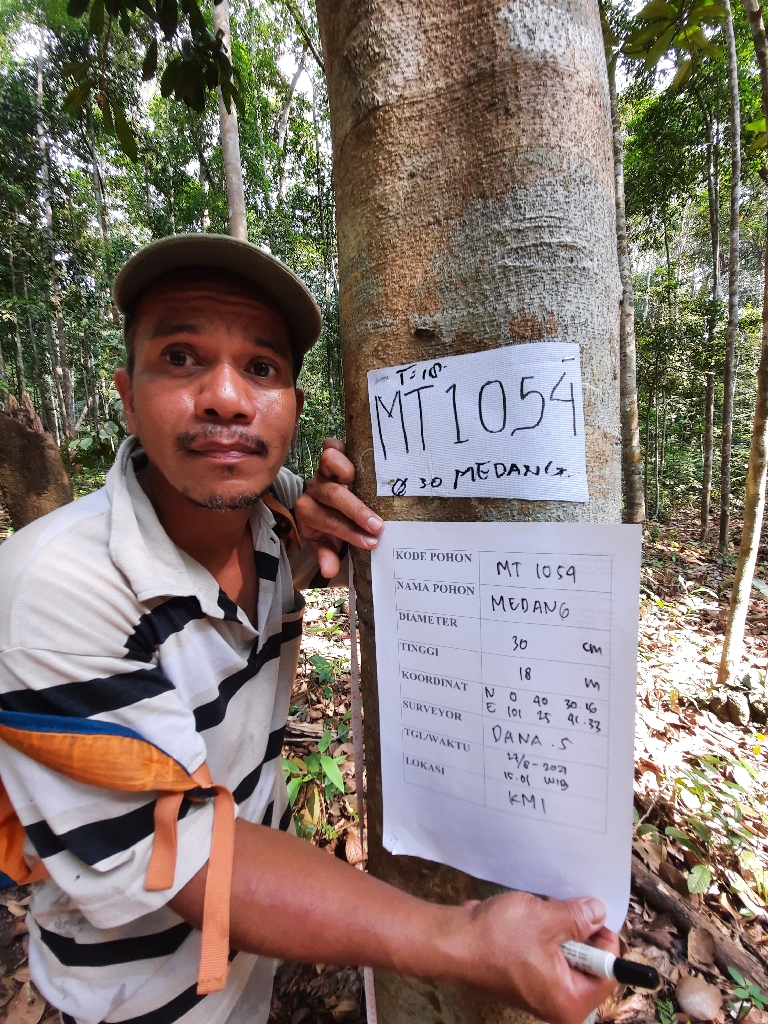 T=18
MT 1054
Ø 30 MEDANG
KODE POHON MT 1054
NAMA POHON MEDANG
DIAMETER 30 cm
TINGGI 18 m
KOORDINAT N 0 40 30.16
E 101 25 41.33
SURVEYOR DANA.S
TGL/WAKTU 27/8-2021
15.01 WIB
LOKASI KMI